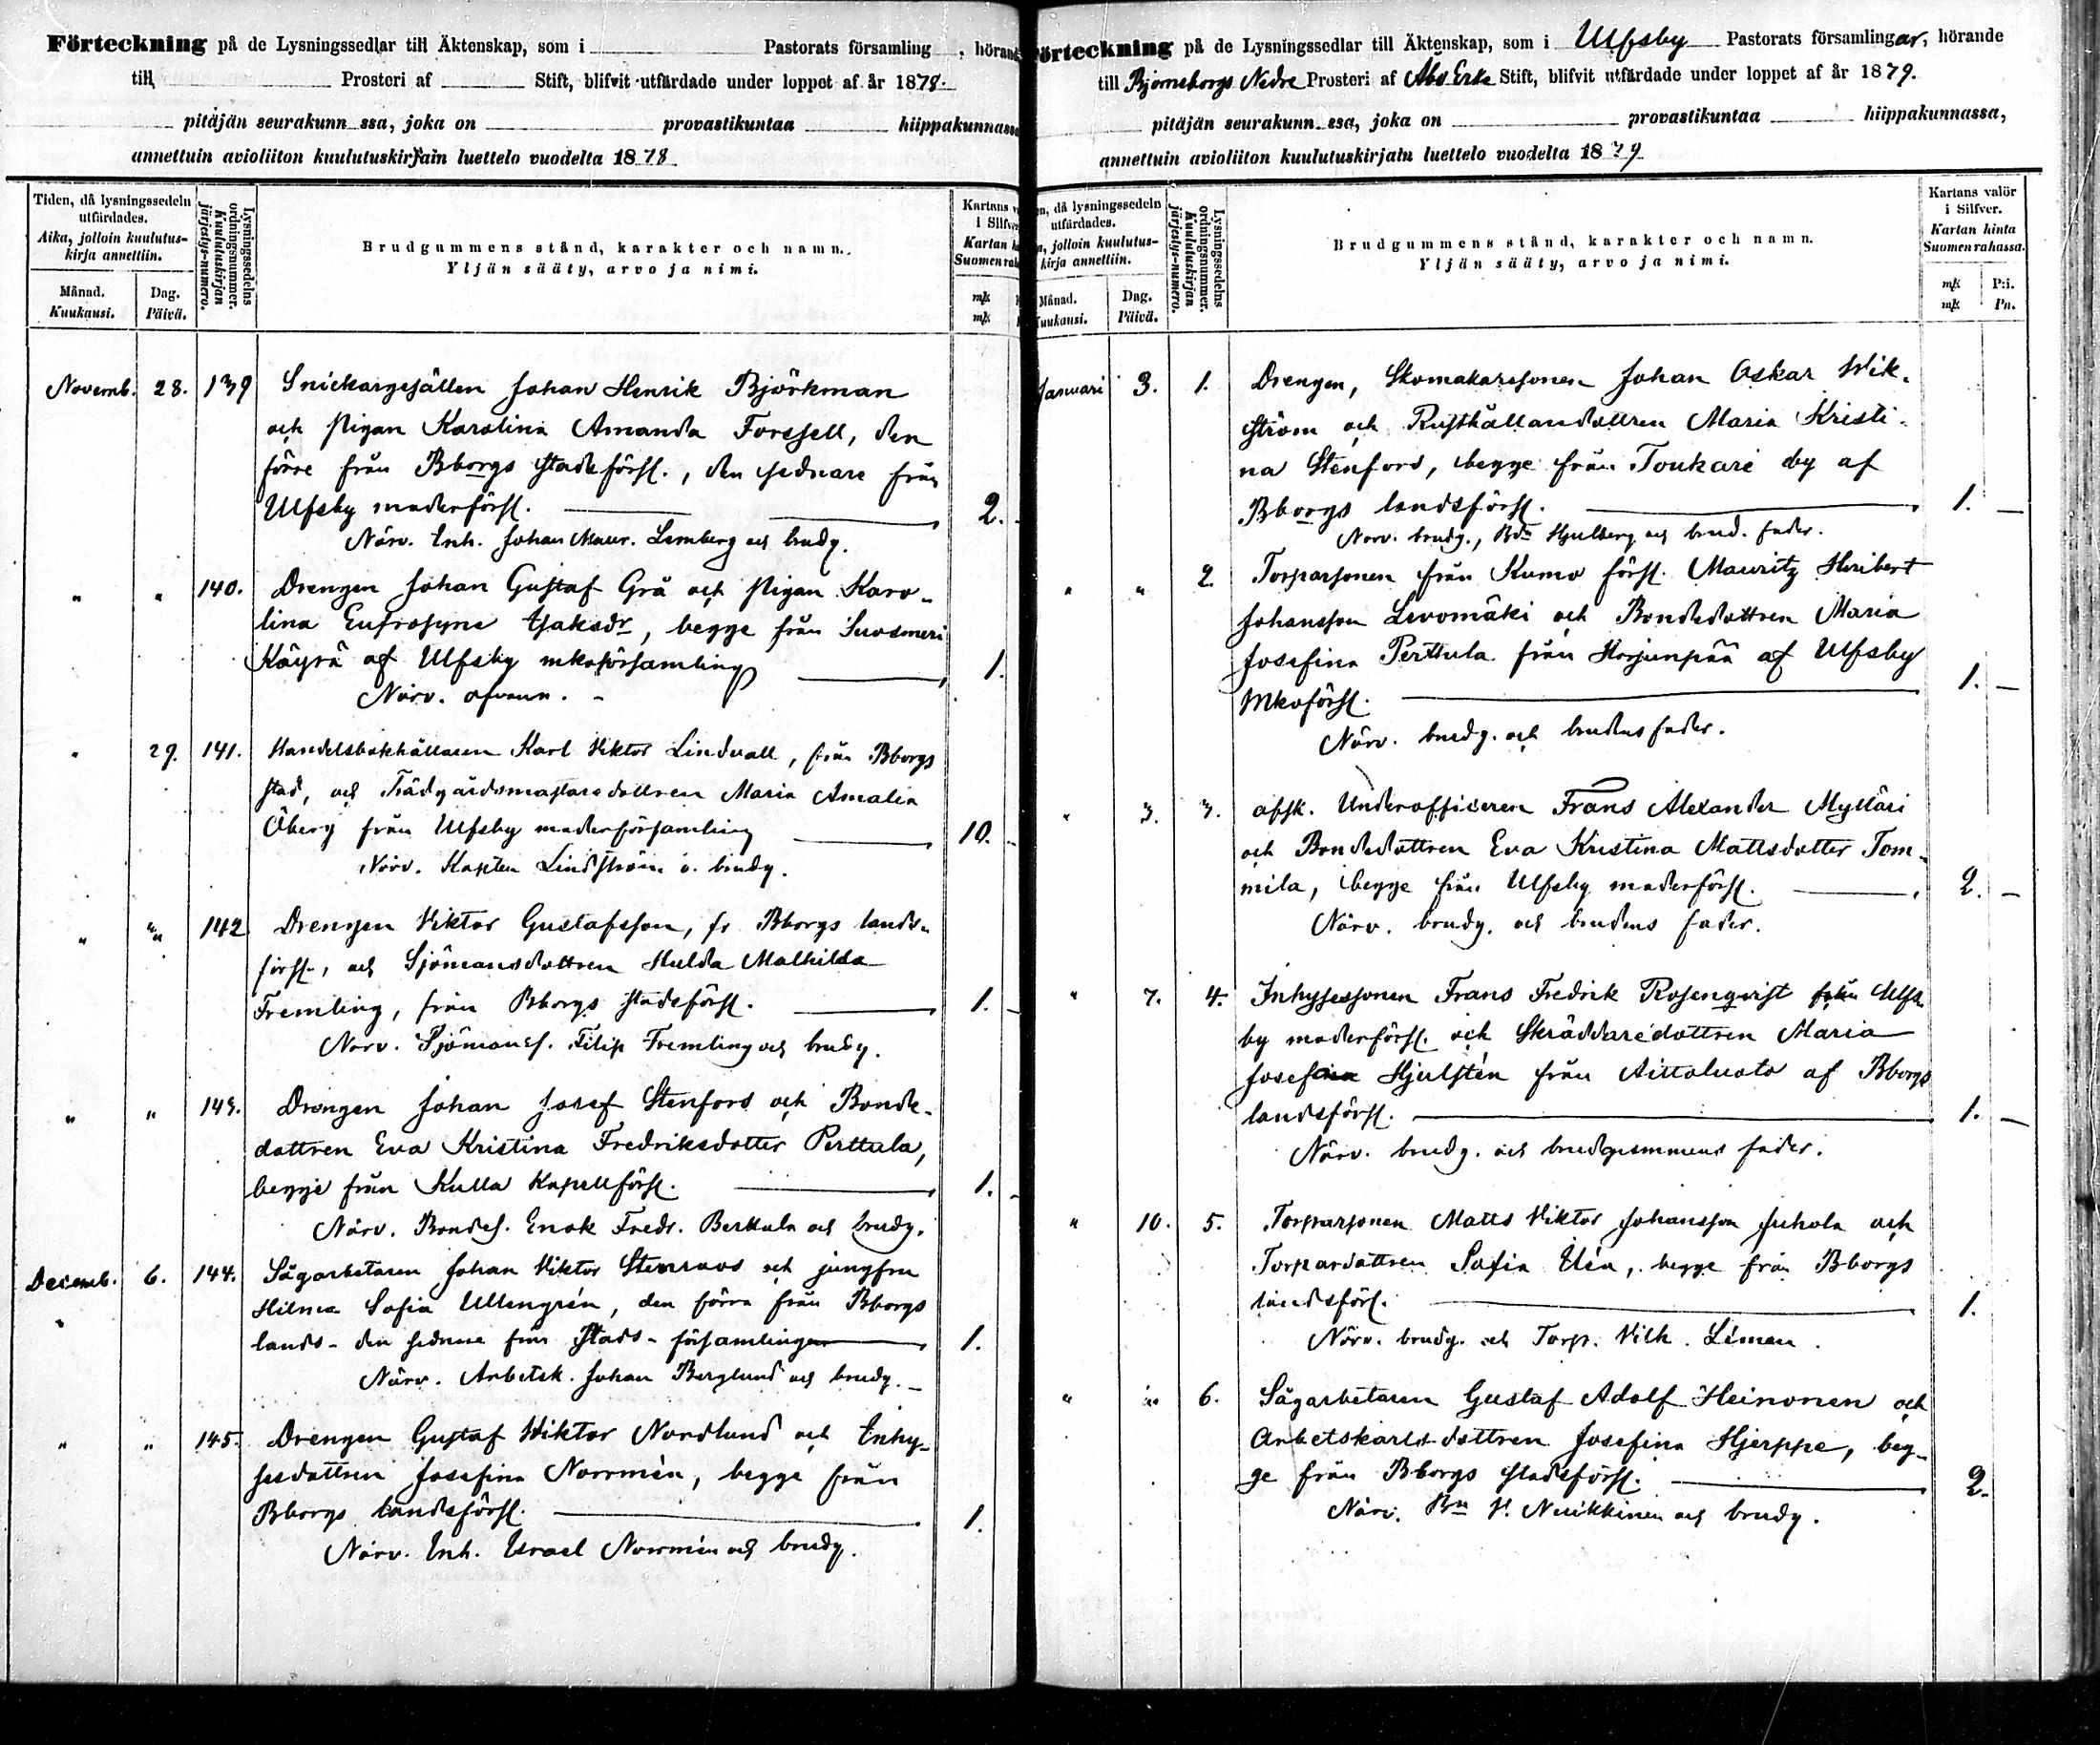 Förteckning på de Lysningssedlar till Äktenskap, som i Pastorats församling , hörande
till Prosteri af Stift, blifvit utfärdade under loppet af år 1878.
pitäjän seurakunn ssa, joka on provastikuntaa hiippakunnassa
annettuin avioliiton kuulutuskirjain luettelo vuodelta 1878
Tiden, då lysningssedeln utfärdades.
Aika, jolloin kuulutuskirja annettiin.
Månad. Kuukausi.
Dag. Päivä.
Lysningssedelns ordningsnummer.
Kuulutuskirjan järjestys-numero.
Brudgummens stånd, karakter och namn.
Yljän sääty, arvo ja nimi.
Kartans v
i Silfver
Kartan h
Suomen rah
mk
mk
Novemb. 28. 139 Snickargesällen Johan Henrik Björkman
och pigan Karolina Amanda Forssell, den
förre från Bborgs stadsförsl., den sednare från
Ulfsby moderförsl. 2.
Närv. Inh. Johan Maur. Lemberg och brudg.
" " 140. Drengen Johan Gustaf Grå och pigan Karo-
lina Eufrosyne Isaksdr, begge från Suosmeri
Käyrä af Ulfsby mkoförsamling 1.
Närv. ofvann.
" 29. 141. Handelsbokhållaren Karl Viktor Lindvall, från Bborgs
stad, och Trädgårdsmästaredottren Maria Amalia
Öberg från Ulfsby moderförsamling 10.
Närv. Kapten Lindström o. brudg.
" " 142 Drengen Viktor Gustafsson, fr Bborgs lands-
försl., och Sjömansdottren Hulda Mathilda
Fremling, från Bborgs stadsförsl. 1.
Närv. Sjömans. Filip Fremling och brudg.
" " 143. Drengen Johan Josef Stenfors och Bonde-
dottren Eva Kristina Fredriksdotter Perttula,
begge från Kulla Kapellförsl. 1.
Närv. Bondes. Enok Fredr. Berkula och brudg.
Decemb. 6. 144. Sågarbetaren Johan Viktor Stenroos och jungfru
" Hilma Sofia Ullengrén, den förra från Bborgs
lands- den sednare från stads-församlingen 1.
Närv. Arbetsk. Johan Berglund och brudg.
" " 145. Drengen Gustaf Wiktor Nordlund och Inhy-
sesdottren Josefina Norrmén, begge från
Bborgs landsförsl. 1.
Närv. Inh. Israel Norrmén och brudg.
Förteckning på de Lysningssedlar till Äktenskap, som i Ulfsby Pastorats församlingar, hörande
till Björneborgs Nedre Prosteri af Åbo Erke Stift, blifvit utfärdade under loppet af år 1879.
pitäjän seurakunn ssa, joka on provastikuntaa hiippakunnassa,
annettuin avioliiton kuulutuskirjain luettelo vuodelta 1879
n, då lysningssedeln utfärdades.
a, jolloin kuulutuskirja annettiin.
Månad. Kuukausi.
Dag. Päivä.
Lysningssedelns ordningsnummer.
Kuulutuskirjan järjestys-numero.
Brudgummens stånd, karakter och namn.
Yljän sääty, arvo ja nimi.
Kartans valör
i Silfver.
Kartan hinta
Suomen rahassa.
mk P:i.
mk Pn.
Januari 3. 1. Drengen, Skomakaresonen Johan Oskar Wik-
ström och Rusthållaredottren Maria Kristi-
na Stenfors, begge från Toukari by af
Bborgs landsförsl. 1. —
Närv. brudg., Bdn Hjulberg och brud. fader.
" " 2. Torparsonen från Kumo försl. Mauritz Heribert
Johansson Levomäki och Bondedottren Maria
Josefina Perttula från Harjunpää af Ulfsby
Mkoförsl. 1. —
Närv. brudg. och brudens fader.
" 3. 3. afsk. Underofficeren Frans Alexander Mylläri
och Bondedottren Eva Kristina Mattsdotter Tom-
mila, begge från Ulfsby moderförsl. 2. —
Närv. brudg. och brudens fader.
" 7. 4. Inhysessonen Frans Fredrik Rosenqvist från Ulfs-
by moderförsl. och Skräddaredottren Maria
Josefina Hjulstén från Aittoluoto af Bborgs
landsförsl. 1. —
Närv. brudg. och brudgummens fader.
" 10. 5. Torparsonen Matts Viktor Johansson Juhola och
Torpardottren Sofia Uén, begge från Bborgs
landsförs. 1.
Närv. brudg. och Torp. Vilh. Léman.
" " 6. Sågarbetaren Gustaf Adolf Heinonen och
Arbetskarlsdottren Josefina Hjerppe, beg-
ge från Bborgs stadsförsl. 2.
Närv. Bn V. Nuikkinen och brudg.